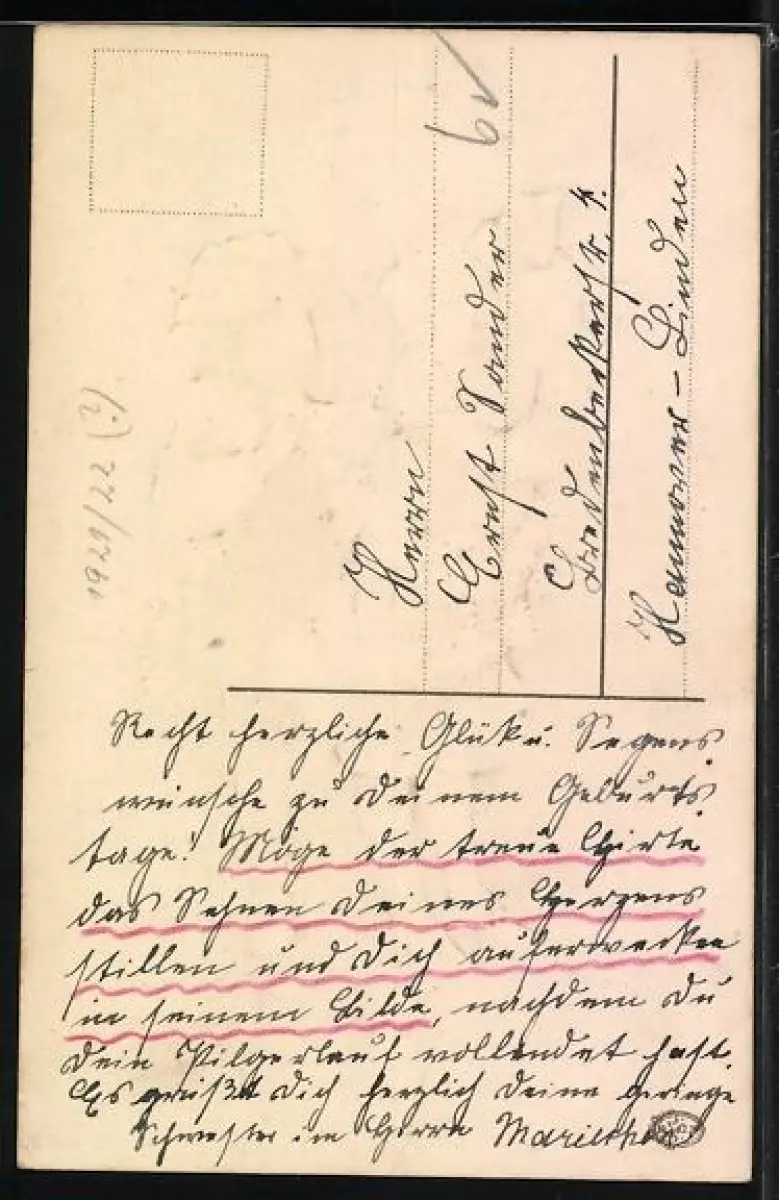 Herrn
Ernst Sander
Hannover-Linden
Recht herzliche Glük u. Segens
wünsche zu Deinem Geburts
tage! Möge der treue Hirte
das Sehnen Deines Herzens
stillen und Dich auferwecken
in seinem Bilde, nachdem Du
Dein Pilgerlauf vollendet hast.
Es grüßt Dich herzlich Deine geringe
Schwester im Herrn